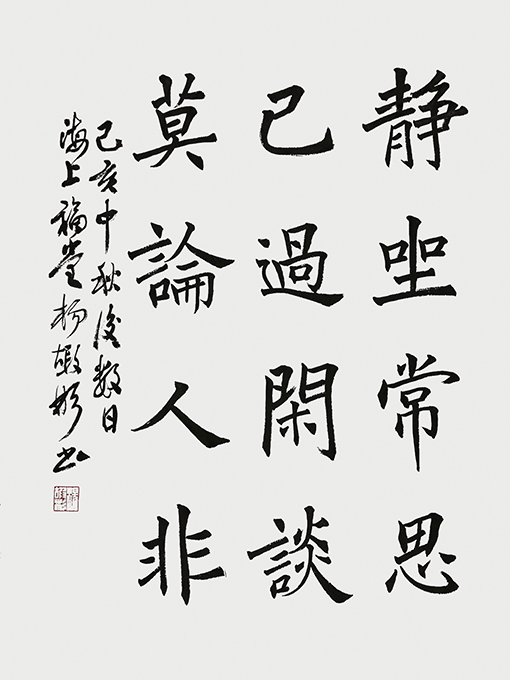 静坐常思
己過閑談
莫論人非
己亥中秋後数日
海上福堂楊敬彬书